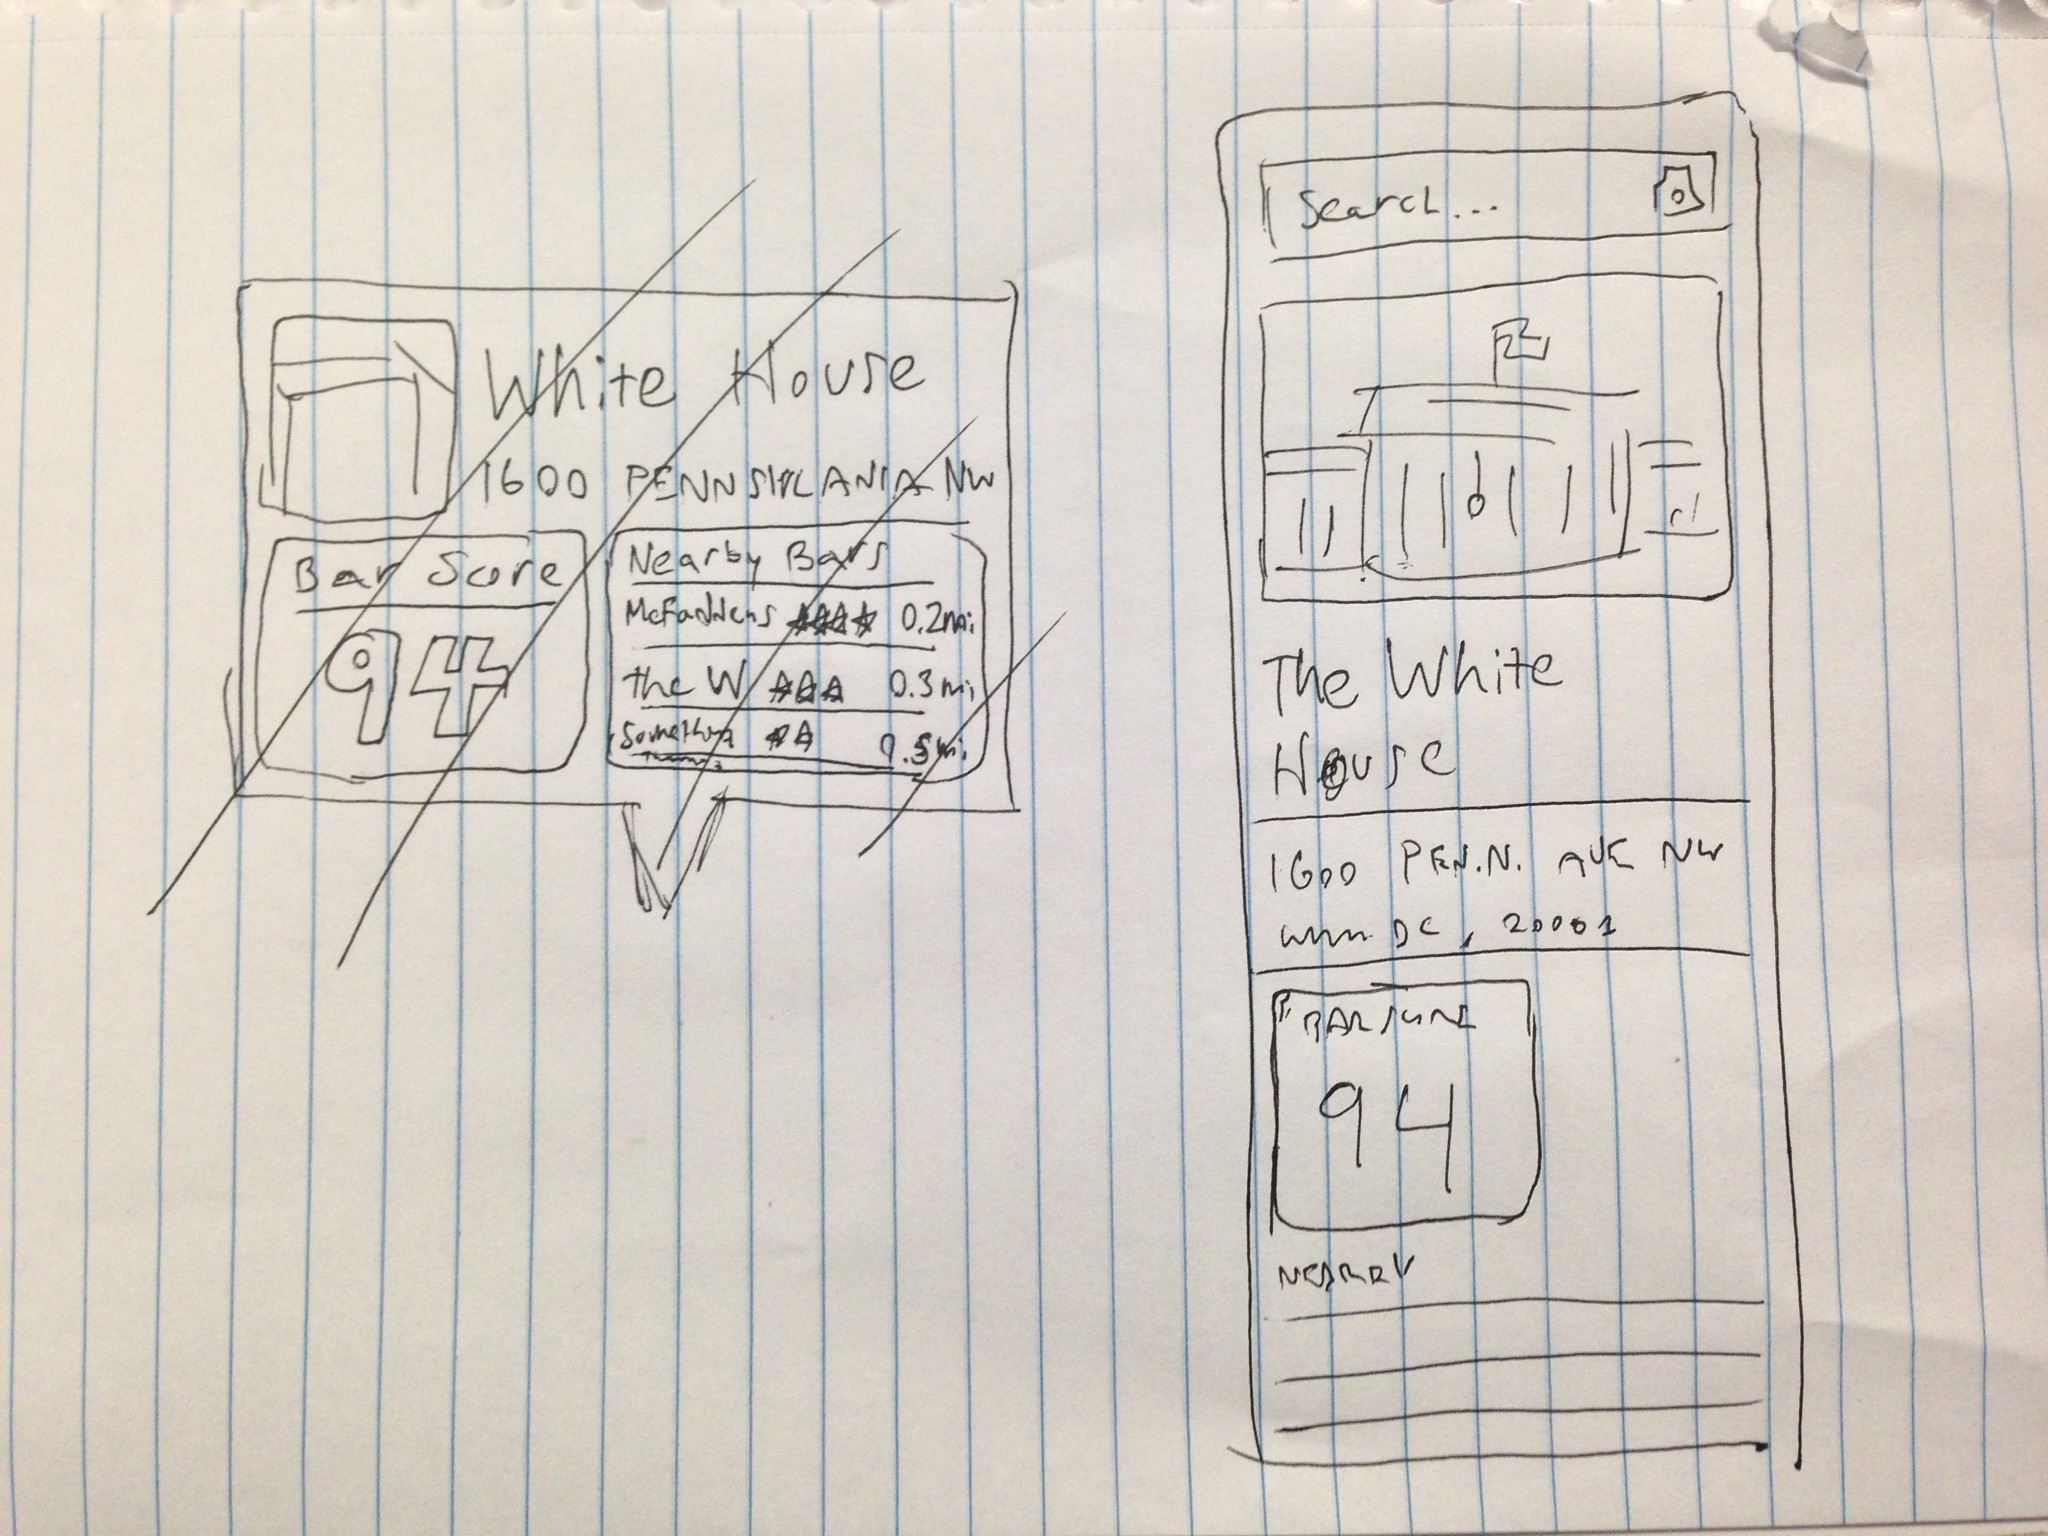 White House
1600 PENNSYLVANIA NW
Bar Score
94
Nearby Bars
McFaddens 0.2mi
the W 0.3mi
Something 0.5mi
Search...
The White
House
1600 PEN.N. AVE NW
DC, 20001
BAR SCORE
94
NEARBY